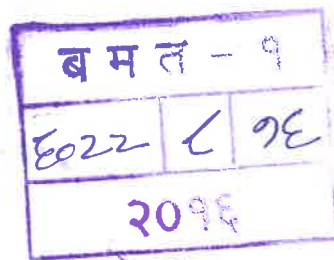 ब म त - १
६०२२ ८ १६
२०१६